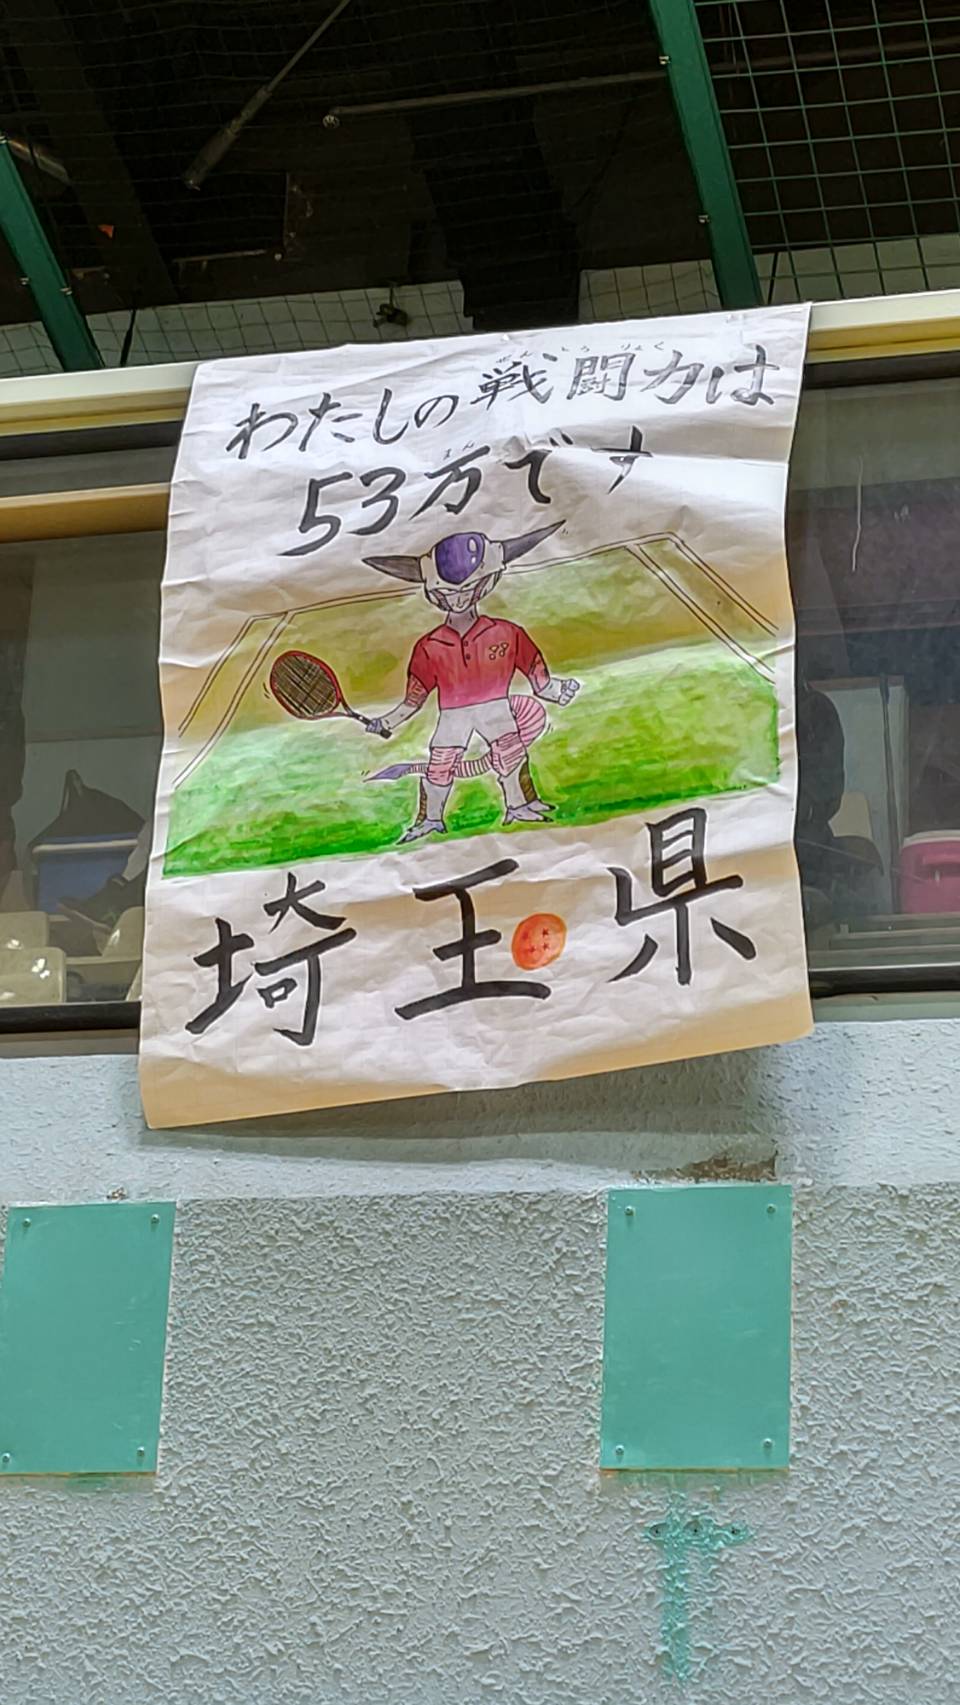 わたしの戦闘力は
53万です
埼玉県